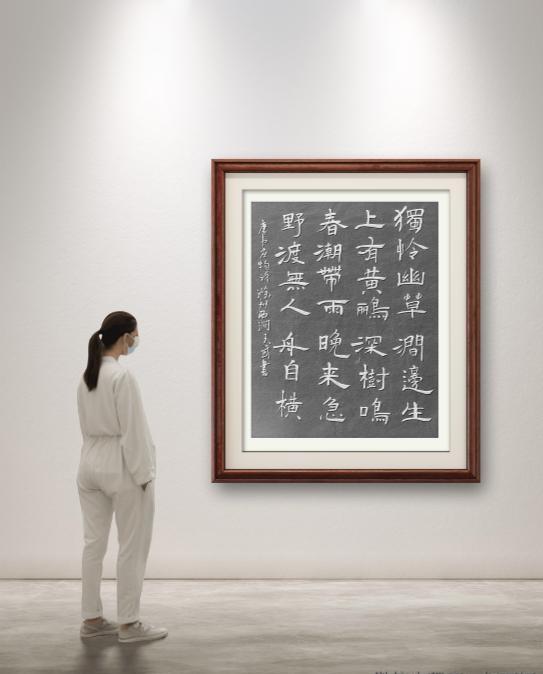 獨怜幽草澗邊生
上有黄鸝深樹鳴
春潮帶雨晚来急
野渡無人舟自横
唐韦应物诗滁州西澗書